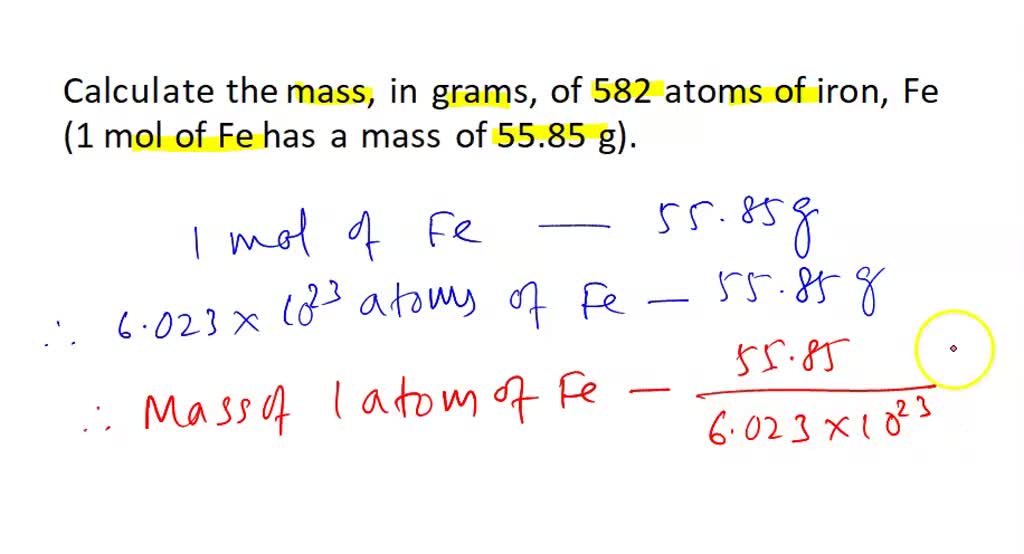 Calculate the mass, in grams, of 582 atoms of iron, Fe
(1 mol of Fe has a mass of 55.85 g).
1 mol of Fe — 55.85g
∴ 6.023 × 10²³ atoms of Fe — 55.85 g
∴ Mass of 1 atom of Fe — 55.85
6.023 × 10²³